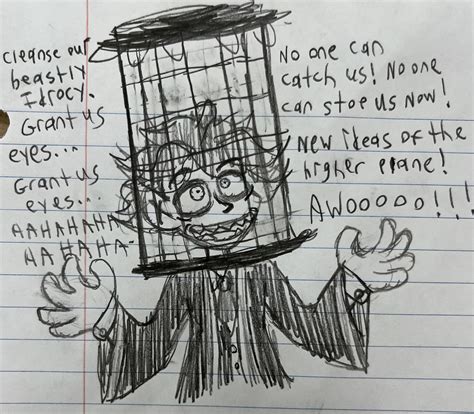 Cleanse our
beastly
Idrocy.
Grant us
eyes...
Grant us
eyes...
AAHAHAHA
HAHAHA-
No one can
catch us! No one
can stoe us now!
New ideas of the
higher plane!
AWOOOOO!!!